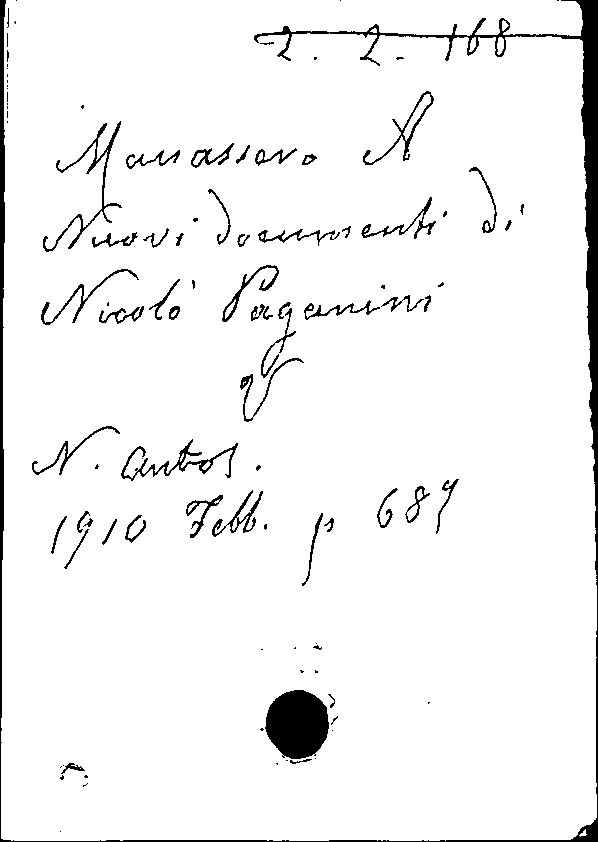 2. 2. 168
Manassero A
Nuovi documenti di
Nicolò Paganini
N. Antol.
1910 Febb. p 689